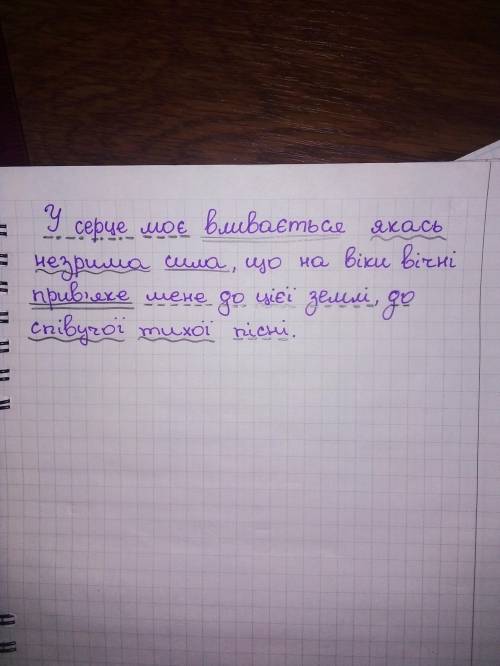 У серце моє вливається якась
незрима сила, що на віки вічні
прив'яже мене до цієї землі, до
співучої тихої пісні.